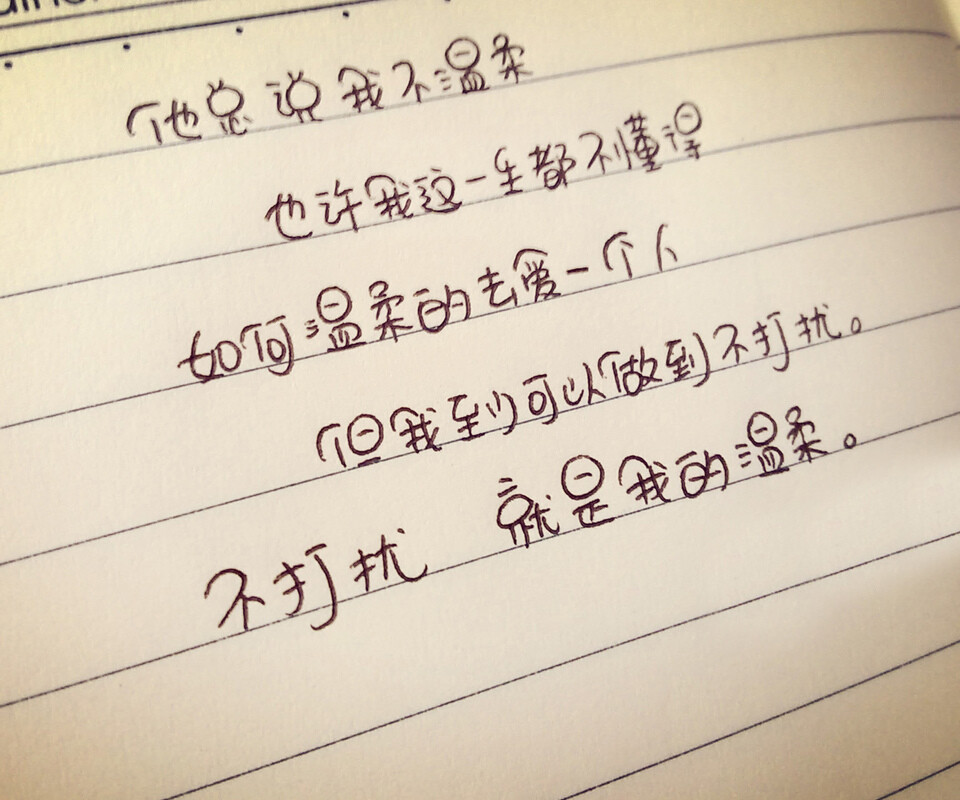 他总说我不温柔
也许我这一生都不懂得
如何温柔的去爱一个人
但我到可以做到不打扰。
不打扰 就是我的温柔。